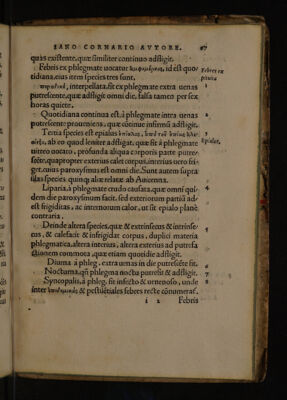 IANO CORNARIO AVTORE. 67
quas existente, quæ similiter continuo adfligit.
Febris ex phlegmate uocatur ἀμφημερινὸς, id est quo
tidiana, eius item species tres sunt.
Febris ex
pituita
interpellata, fit ex phlegmate extra uenas
putrescente, quæ adfligit omni die, salsa tamen per sex
horas quiete.
Quotidiana continua est, à phlegmate intra uenas
putrescente proueniens, quæ continue infensa adfligit.
Tertia species est epialus
ab eo quod leniter adfligat, quæ fit à phlegmate
Epialus
uitreo uocato, profunda aliqua corporis parte putre-
scēte, quapropter exterius calet corpus, interius uero fri-
get, cuius paroxysmus est omni die. Sunt autem supra
illas species quinq; aliæ relatæ ab Auicenna.
Liparia, à phlegmate crudo causata, quæ omni qui-
dem die paroxysmum facit, sed exteriorum partiū ad-
est frigiditas, ac interiorum calor, ut sit epialo planè
contraria.
Deinde altera species, quæ & extrinsecus & intrinse-
cus, & calefacit & infrigidat corpus, duplici materia
phlegmatica, altera interna, altera exterius ad putrefa
ctionem commota, quæ etiam quotidie adfligit.
Diurna à phleg. extra uenas in die putrescēte fit.
Nocturna, qñ phlegma nocte putrescit & adfligit.
Syncopalis, à phleg. fit infecto & uenenoso, unde
inter & pestilētiales febres recte cōnumerat̃.
i 2 Febris